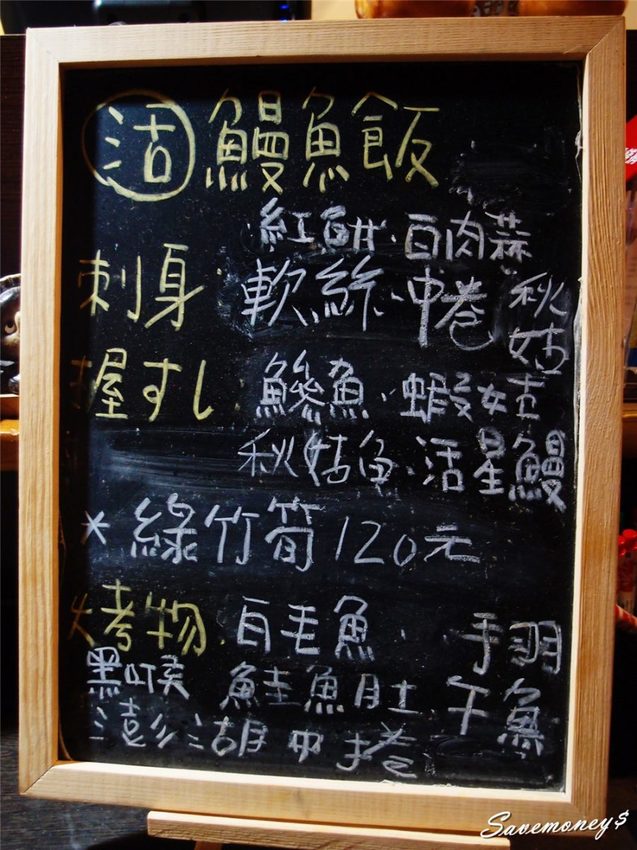 活 鰻魚飯
紅魽.白肉蒜
刺身: 軟絲.中卷 秋姑
握すし: 鰺魚.蝦蛙
秋姑魚.活星鰻
* 綠竹筍 120元
烤物: 白毛魚. 手羽
黑喉 鮭魚肚 午魚
澎湖中捲
Savemoney$